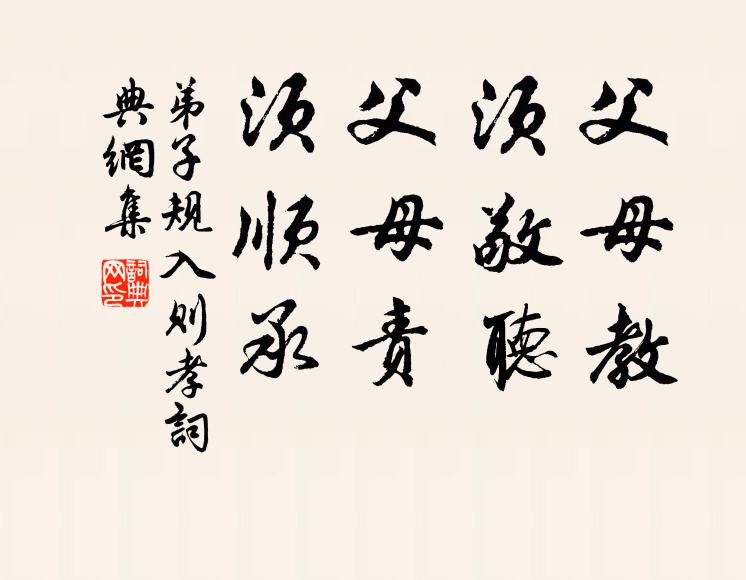 父母教
須敬聽
父母責
須順承
弟子規入則孝詞
典網集
詞典網印